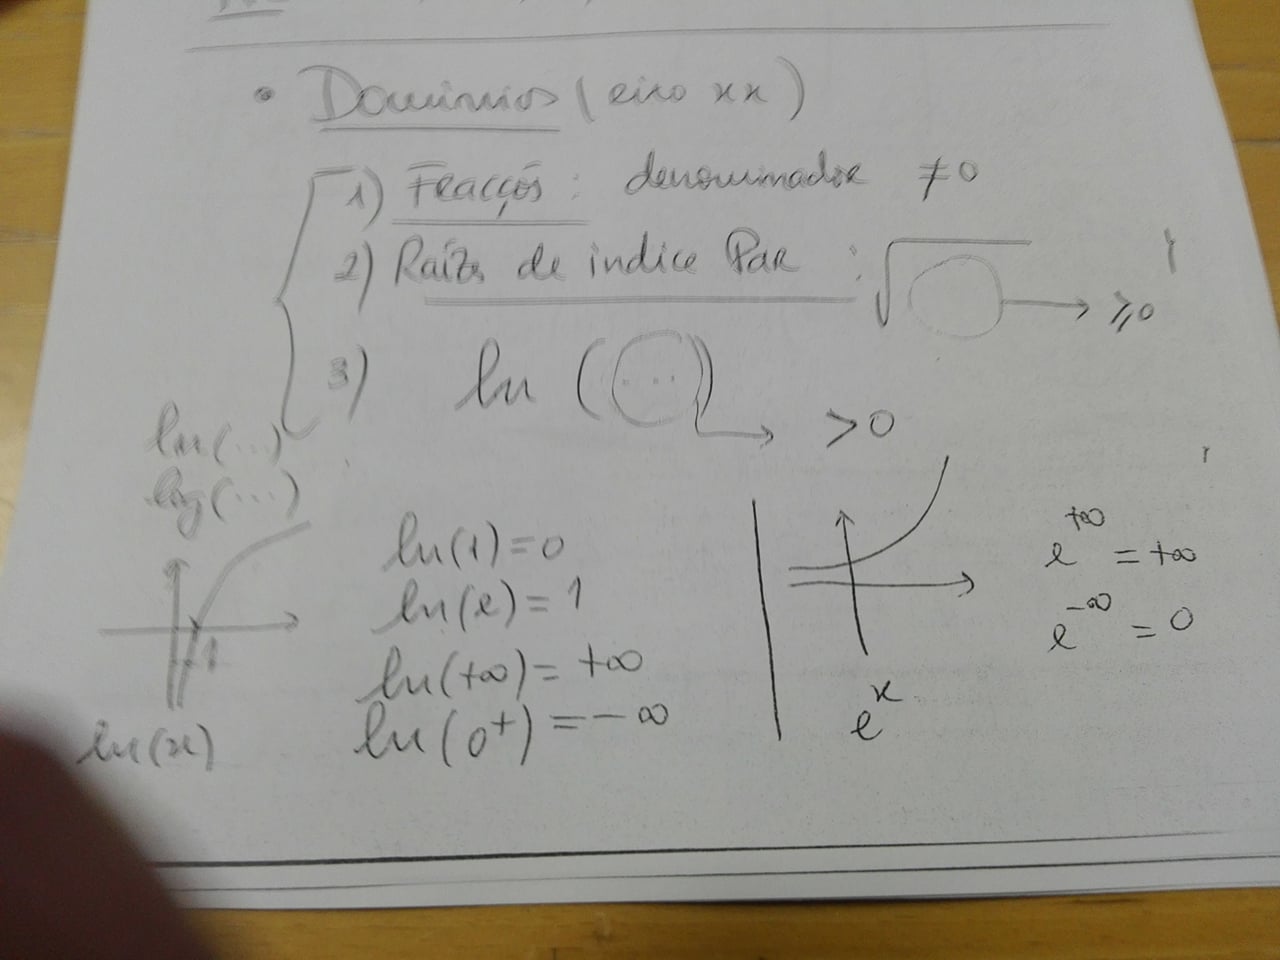 • Domínios (eixo xx)
1) Fracçõs : denominador ≠0
2) Raízs de indice PAR : √ → ≥0
3) ln (...) → >0
ln(...)
log(...)
1
ln(x)
ln(1)=0
ln(e)=1
ln(+∞)=+∞
ln(0⁺)=-∞
eˣ
e^{+∞} = +∞
e^{-∞} = 0